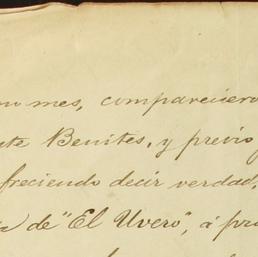 mes, comparecieron
Benites, y previo
freciendo decir verdad,
de "El Uvero", á pro